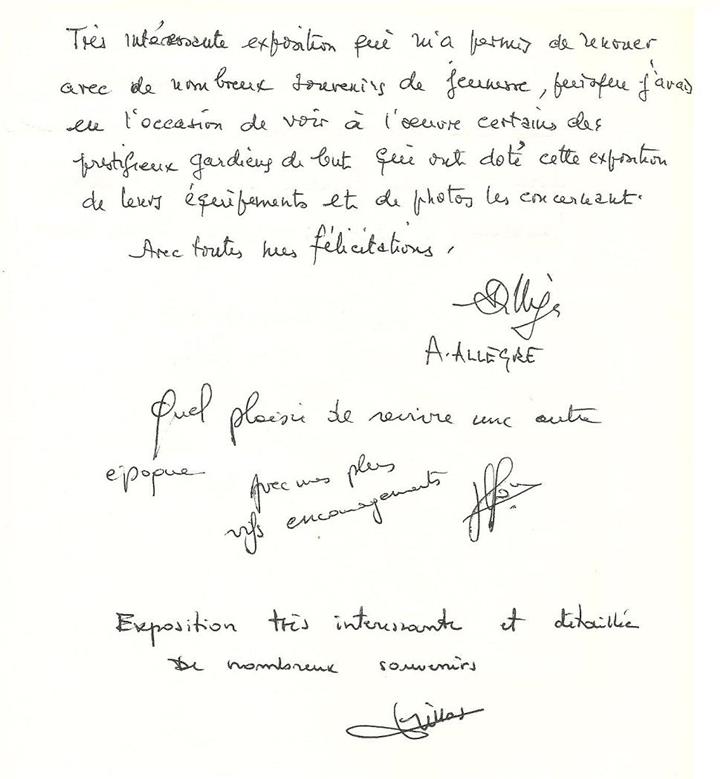 Très intéressante exposition qui m'a permis de renouer
avec de nombreux souvenirs de jeunesse, puisque j'avais
eu l'occasion de voir à l'œuvre certains des
prestigieux gardiens de but qui ont doté cette exposition
de leurs équipements et de photos les concernant.
Avec toutes mes félicitations,
A. ALLEGRE
Quel plaisir de revivre une autre
epoque
Avec mes plus
vifs encouragements
Exposition très interessante et detaillée
De nombreux souvenirs